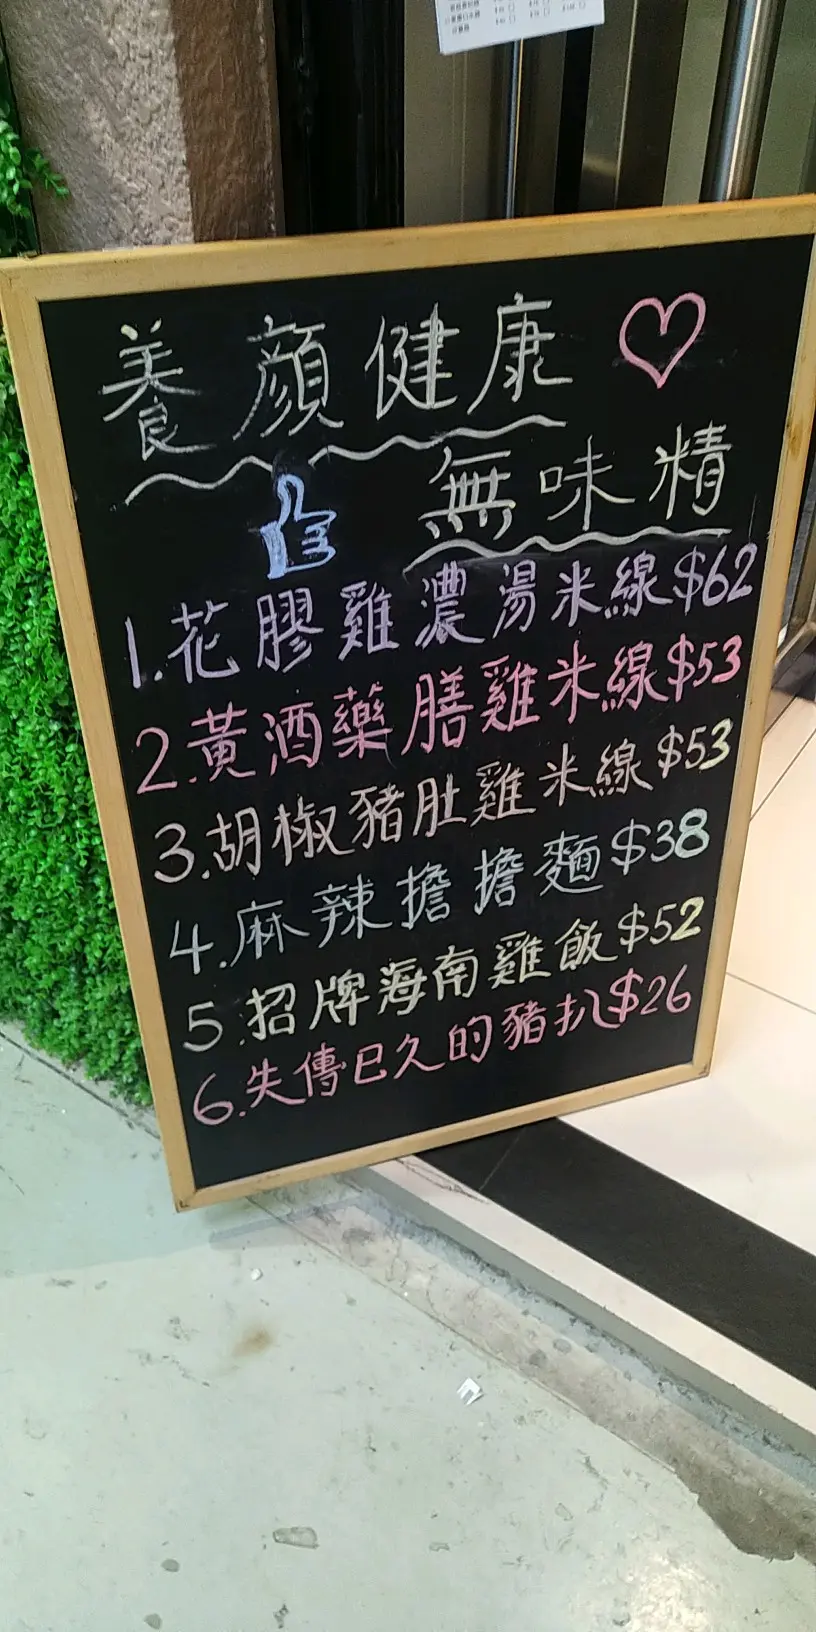 養顏健康
無味精
1.花膠雞濃湯米線$62
2.黃酒藥膳雞米線$53
3.胡椒豬肚雞米線$53
4.麻辣擔擔麵$38
5.招牌海南雞飯$52
6.失傳已久的豬扒$26